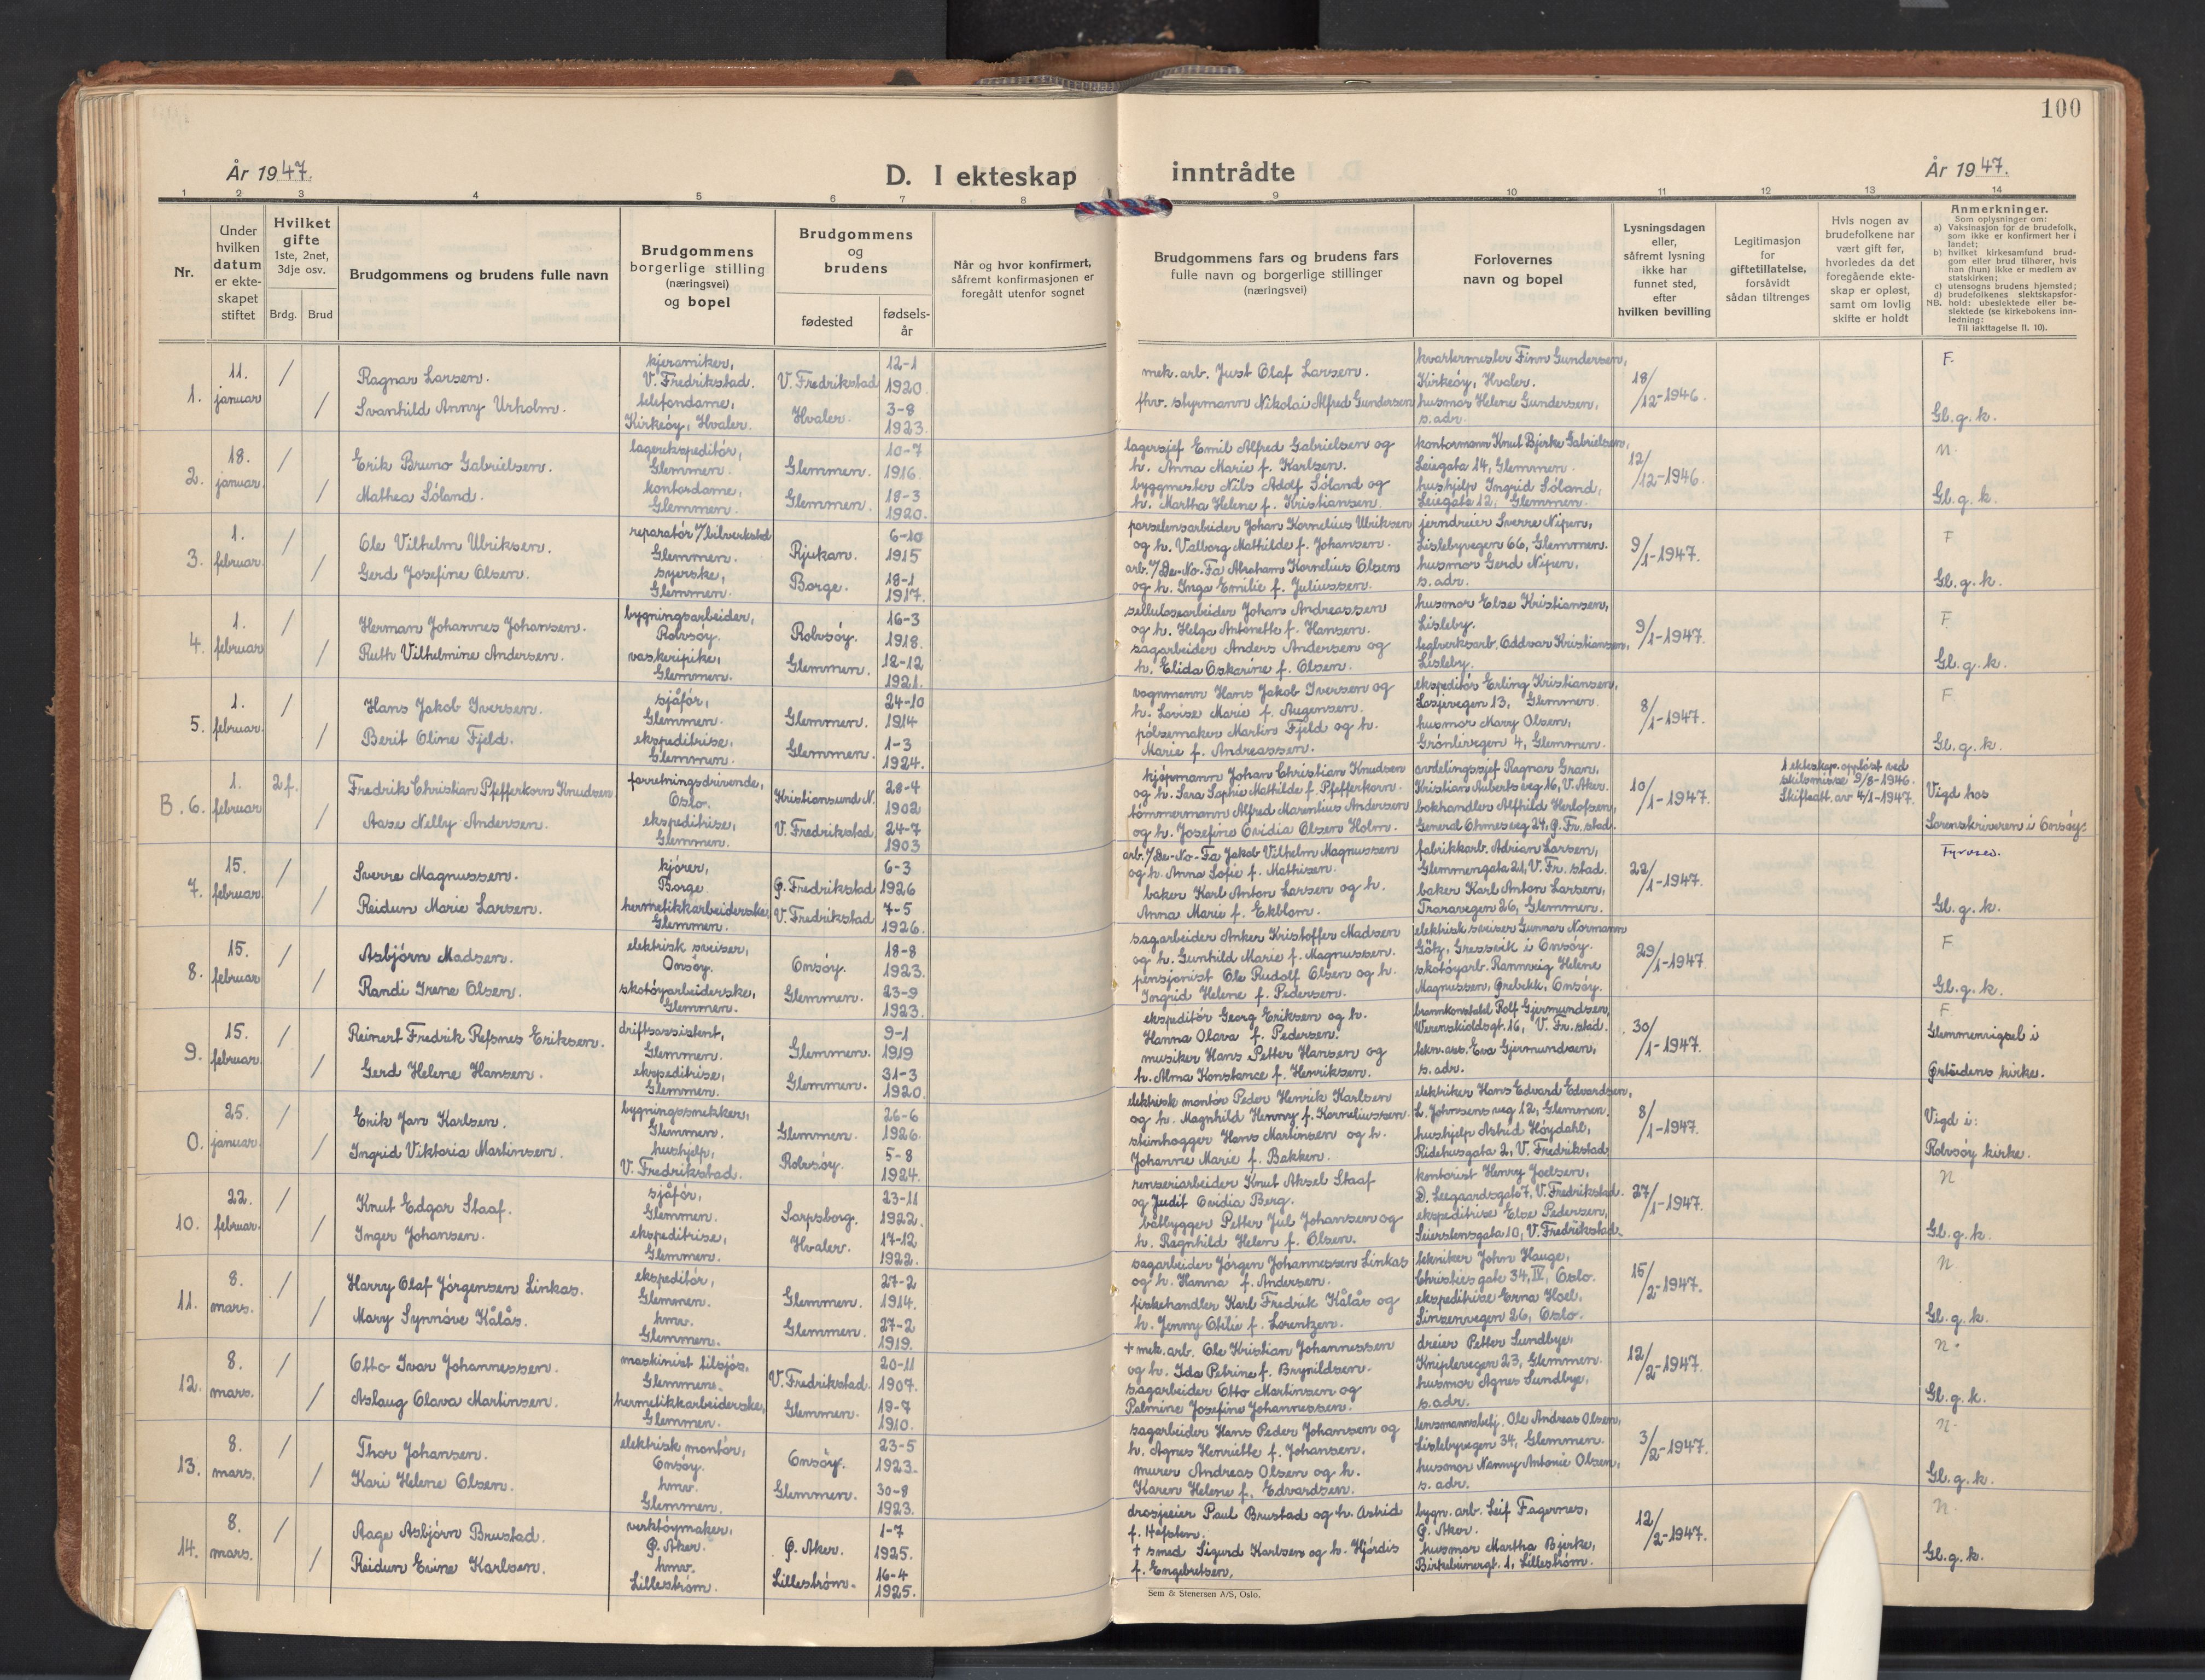 100
År 1947.
D. I ekteskap inntrådte
År 1947.
1 2 3 4 5 6 7 8 9 10 11 12 13 14
Nr.
Under hvilken datum er ekte-skapet stiftet
Hvilket gifte
1ste, 2net, 3dje osv.
Brdg. Brud
Brudgommens og brudens fulle navn
Brudgommens borgerlige stilling (næringsvei) og bopel
Brudgommens og brudens
fødested
fødsels-år
Når og hvor konfirmert, såfremt konfirmasjonen er foregått utenfor sognet
Brudgommens fars og brudens fars
fulle navn og borgerlige stillinger
(næringsvei)
Forlovernes navn og bopel
Lysningsdagen eller, såfremt lysning ikke har funnet sted, efter hvilken bevilling
Legitimasjon for giftetillatelse, forsåvidt sådan tiltrenges
Hvis nogen av brudefolkene har vært gift før, hvorledes da det foregående ekte-skap er opløst, samt om lovlig skifte er holdt
Anmerkninger.
Som oplysninger om:
a) Vaksinasjon for de brudefolk, som ikke er konfirmert her i landet;
b) hvilket kirkesamfund brud-gom eller brud tilhører, hvis han (hun) ikke er medlem av statskirken;
c) utensogns brudens hjemsted;
d) brudefolkenes slektskapsfor-hold: ubeslektede eller be-slektede (se kirkebokens inn-ledning:
NB. Til iakttagelse II. 10).
1. 11. januar / Ragnar Larsen. kjeramiker, V. Fredrikstad. V. Fredrikstad 12-1 1920
/ Svanhild Anny Urholm. telefondame, Kirkeöy, Hvaler. Hvaler. 3-8 1923.
mek. arb. Just Olaf Larsen.
fhv. styrmann Nikolai Alfred Gundersen
kvartermester Finn Gundersen, Kirkeöy, Hvaler.
husmor Helene Gundersen, s. adr.
18/12-1946.
F.
Gl. g. k.
2. 18. januar. / Erik Bruno Gabrielsen. lagerekspeditör, Glemmen. Glemmen. 10-7 1916.
/ Mathea Söland. kontordame, Glemmen. Glemmen. 18-3 1920.
lagersjef Emil Alfred Gabrielsen og h. Anna Marie f. Karlsen.
byggmester Nils Adolf Söland og h. Martha Helene f. Kristiansen.
kontormann Knut Bjerke Gabrielsen, Leiegata 14, Glemmen.
hushjelp Ingrid Söland, Leiegata 12, Glemmen.
12/12-1946.
N.
Gl. g. k.
3. 1. februar. / Ole Vilhelm Ulriksen. reparatör v/bilverksted Glemmen. Rjukan. 6-10 1915
/ Gerd Josefine Olsen. syerske, Glemmen. Borge. 18-1 1917.
porselensarbeider Johan Kornelius Ulriksen og h. Valborg Mathilde f. Johansen.
arb. v/De-No-Fa Abraham Kornelius Olsen og h. Inga Emilie f. Juliussen.
jerndreier Sverre Nipen, Lislebyvegen 66, Glemmen.
husmor Gerd Nipen, s. adr.
9/1-1947.
F
Gl. g. k.
4. 1. februar / Herman Johannes Johansen. bygningsarbeider, Rolvsöy. Rolvsöy. 16-3 1918.
/ Ruth Vilhelmine Andersen. vaskeripike, Glemmen. Glemmen. 12-12 1921.
sellulosearbeider Johan Andreassen og h. Helga Antonette f. Hansen.
sagarbeider Anders Andersen og h. Elida Oskarine f. Olsen.
husmor Else Kristiansen, Lisleby.
teglverksarb. Oddvar Kristiansen, Lisleby.
9/1-1947.
F.
Gl. g. k.
5. 1. februar. / Hans Jakob Iversen. sjåför, Glemmen. Glemmen. 24-10 1914
/ Berit Oline Fjeld. ekspeditrise, Glemmen. Glemmen. 1-3 1924.
vognmann Hans Jakob Iversen og h. Lovise Marie f. Augensen.
pölsemaker Martin Fjeld og h. Marie f. Andreassen.
ekspeditör Erling Kristiansen, Losjevegen 13, Glemmen.
husmor Mary Olsen, Grönlivegen 4, Glemmen.
8/1-1947.
F
Gl. g. k.
B. 6. 1. februar 2 f. Fredrik Christian Pfefferkorn Knudsen forretningsdrivende, Oslo. Kristiansund N. 28-4 1902
/ Aase Nelly Andersen. ekspeditrise, Glemmen. V. Fredrikstad 24-7 1903
kjøpmann Johan Christian Knudsen og h. Sara Sophie Mathilde f. Pfefferkorn.
tömmermann Alfred Marentius Andersen og h. Josefine Ovidia Olsen Holm.
avdelingssjef Ragnar Gran, Kristian Auberts veg 16, V. Aker.
bokhandler Alfhild Herlofsen, General Ohmes veg 24, Ø. Fr. stad.
10/1-1947.
1 ekteskap. oppløst ved skilsmisse 9/8-1946. Skifteatt. av 4/1-1947.
Vigd hos Sorenskriveren i Onsöy.
7. 15. februar. / Sverre Magnussen. kjörer, Borge. Ø. Fredrikstad 6-3 1926
/ Reidun Marie Larsen. hermetikkarbeiderske, Glemmen. V. Fredrikstad 7-5 1926.
arb. v/De-No-Fa Jakob Vilhelm Magnussen og h. Anna Sofie f. Mathisen.
baker Karl Anton Larsen og h. Anna Marie f. Ekblom.
fabrikkarb. Adrian Larsen, Glemmengata 21, V. Fr. stad.
baker Karl Anton Larsen, Traravegen 26, Glemmen.
22/1-1947.
Gl. g. k.
8. 15. februar / Asbjörn Madsen. elektrisk sveiser, Onsöy. Onsöy. 18-8 1923.
/ Randi Irene Olsen. skotöyarbeiderske, Glemmen. Glemmen. 23-9 1923.
sagarbeider Anker Kristoffer Madsen og h. Gunhild Marie f. Magnussen.
pensjonist Ole Rudolf Olsen og h. Ingrid Helene f. Pedersen.
elektrisk sveiser Gunnar Normann Götz, Gressvik i Onsöy.
skotöyarb. Rannveig Helene Magnussen, Ørebekk, Onsöy.
29/1-1947
F
Gl. g. k.
9. 15. februar. / Reinert Fredrik Refsnes Eriksen. driftsassistent, Glemmen. Glemmen. 9-1 1919
/ Gerd Helene Hansen. ekspeditrise, Glemmen. Glemmen. 31-3 1920.
ekspeditör Georg Eriksen og h. Hanna Olava f. Pedersen.
musiker Hans Petter Hansen og h. Alma Konstance f. Henriksen.
brannkonstabel Rolf Gjermundsen, Werenskioldsgt. 16, V. Fr. stad.
tekn. ass. Eva Gjermundsen, s. adr.
30/1-1947.
F
Glemmenvigsel i Østsidens kirke.
0. 25. januar. / Erik Jan Karlsen. bygningssnekker, Glemmen. Glemmen. 26-6 1926.
/ Ingrid Viktoria Martinsen. hushjelp, V. Fredrikstad. Rolvsöy. 5-8 1924.
elektrisk montör Peder Henrik Karlsen og h. Magnhild Henny f. Korneliussen.
steinhogger Hans Martinsen og h. Johanne Marie f. Bakken.
elektriker Hans Edvard Edvardsen, L. Johnsens veg 12, Glemmen.
hushjelp Astrid Höydahl, Ridehusgata 2, V. Fredrikstad.
8/1-1947.
Vigd i: Rolvsöy kirke.
10. 22. februar. / Knut Edgar Staaf. sjåför, Glemmen. Sarpsborg. 23-11 1922.
/ Inger Johansen. ekspeditrise, Glemmen. Hvaler. 17-12 1922.
renseriarbeider Knut Aksel Staaf og Judit Ovidia Berg.
båtbygger Petter Jul Johansen og h. Ragnhild Helen f. Olsen.
kontorist Henry Joelsen, D. Leegaardsgat 7, V. Fredrikstad.
ekspeditrise Else Pedersen, Seierstensgata 10, V. Fredrikstad.
27/1-1947.
N
Gl. g. k.
11. 8. mars. / Harry Olaf Jörgensen Linkas. ekspeditör, Glemmen. Glemmen. 27-2 1914.
/ Mary Synnöve Kålås. hmv. Glemmen. Glemmen. 27-2 1919.
sagarbeider Jörgen Johannessen Linkas og h. Hanna f. Andersen.
fiskehandler Karl Fredrik Kålås og h. Jenny Otilie f. Lorentzen.
tekniker John Hauge, Christies gate 34, IV, Oslo.
ekspeditrise Erna Hoel, Sinsenvegen 26, Oslo.
15/2-1947.
N.
Gl. g. k.
12. 8. mars. / Otto Ivar Johannessen. maskinist tilsjös, Glemmen. V. Fredrikstad. 20-11 1907.
/ Aslaug Olava Martinsen. hermetikkarbeiderske, Glemmen. Glemmen. 19-7 1910.
+ mek. arb. Ole Kristian Johannessen og h. Ida Petrine f. Brynildsen.
sagarbeider Otto Martinsen og Palmine Josefine Johannessen.
dreier Petter Sundbye, Kniplevegen 23, Glemmen.
husmor Agnes Sundbye, s. adr.
12/2-1947.
N.
Gl. g. k.
13. 8. mars. / Thor Johansen. elektrisk montör, Onsöy. Onsöy. 23-5 1923.
/ Kari Helene Olsen. hmv. Glemmen. Glemmen. 30-8 1923.
sagarbeider Hans Peder Johansen og h. Agnes Henriette f. Johansen.
murer Andreas Olsen og h. Karen Helene f. Edvardsen.
lensmannsbetj. Ole Andreas Olsen, Lislebyvegen 34, Glemmen.
husmor Nanny Antonie Olsen, s. adr.
3/2-1947.
N.
Gl. g. k.
14. 8. mars. / Aage Asbjörn Brustad. verktöymaker, Ø. Aker. Ø. Aker. 1-7 1925.
/ Reidun Erine Karlsen. hmv. Lilleström. Lilleström. 16-4 1925.
drosjeeier Paul Brustad og h. Astrid f. Hefsten.
+ smed Sigurd Karlsen og h. Hjördis f. Engebretsen,
bygn. arb. Leif Fagernes, Ø. Aker.
husmor Martha Bjerke, Birkebeinergt. 1, Lilleström.
12/2-1947.
N.
Gl. g. k.
Sem & Stenersen A/S, Oslo.